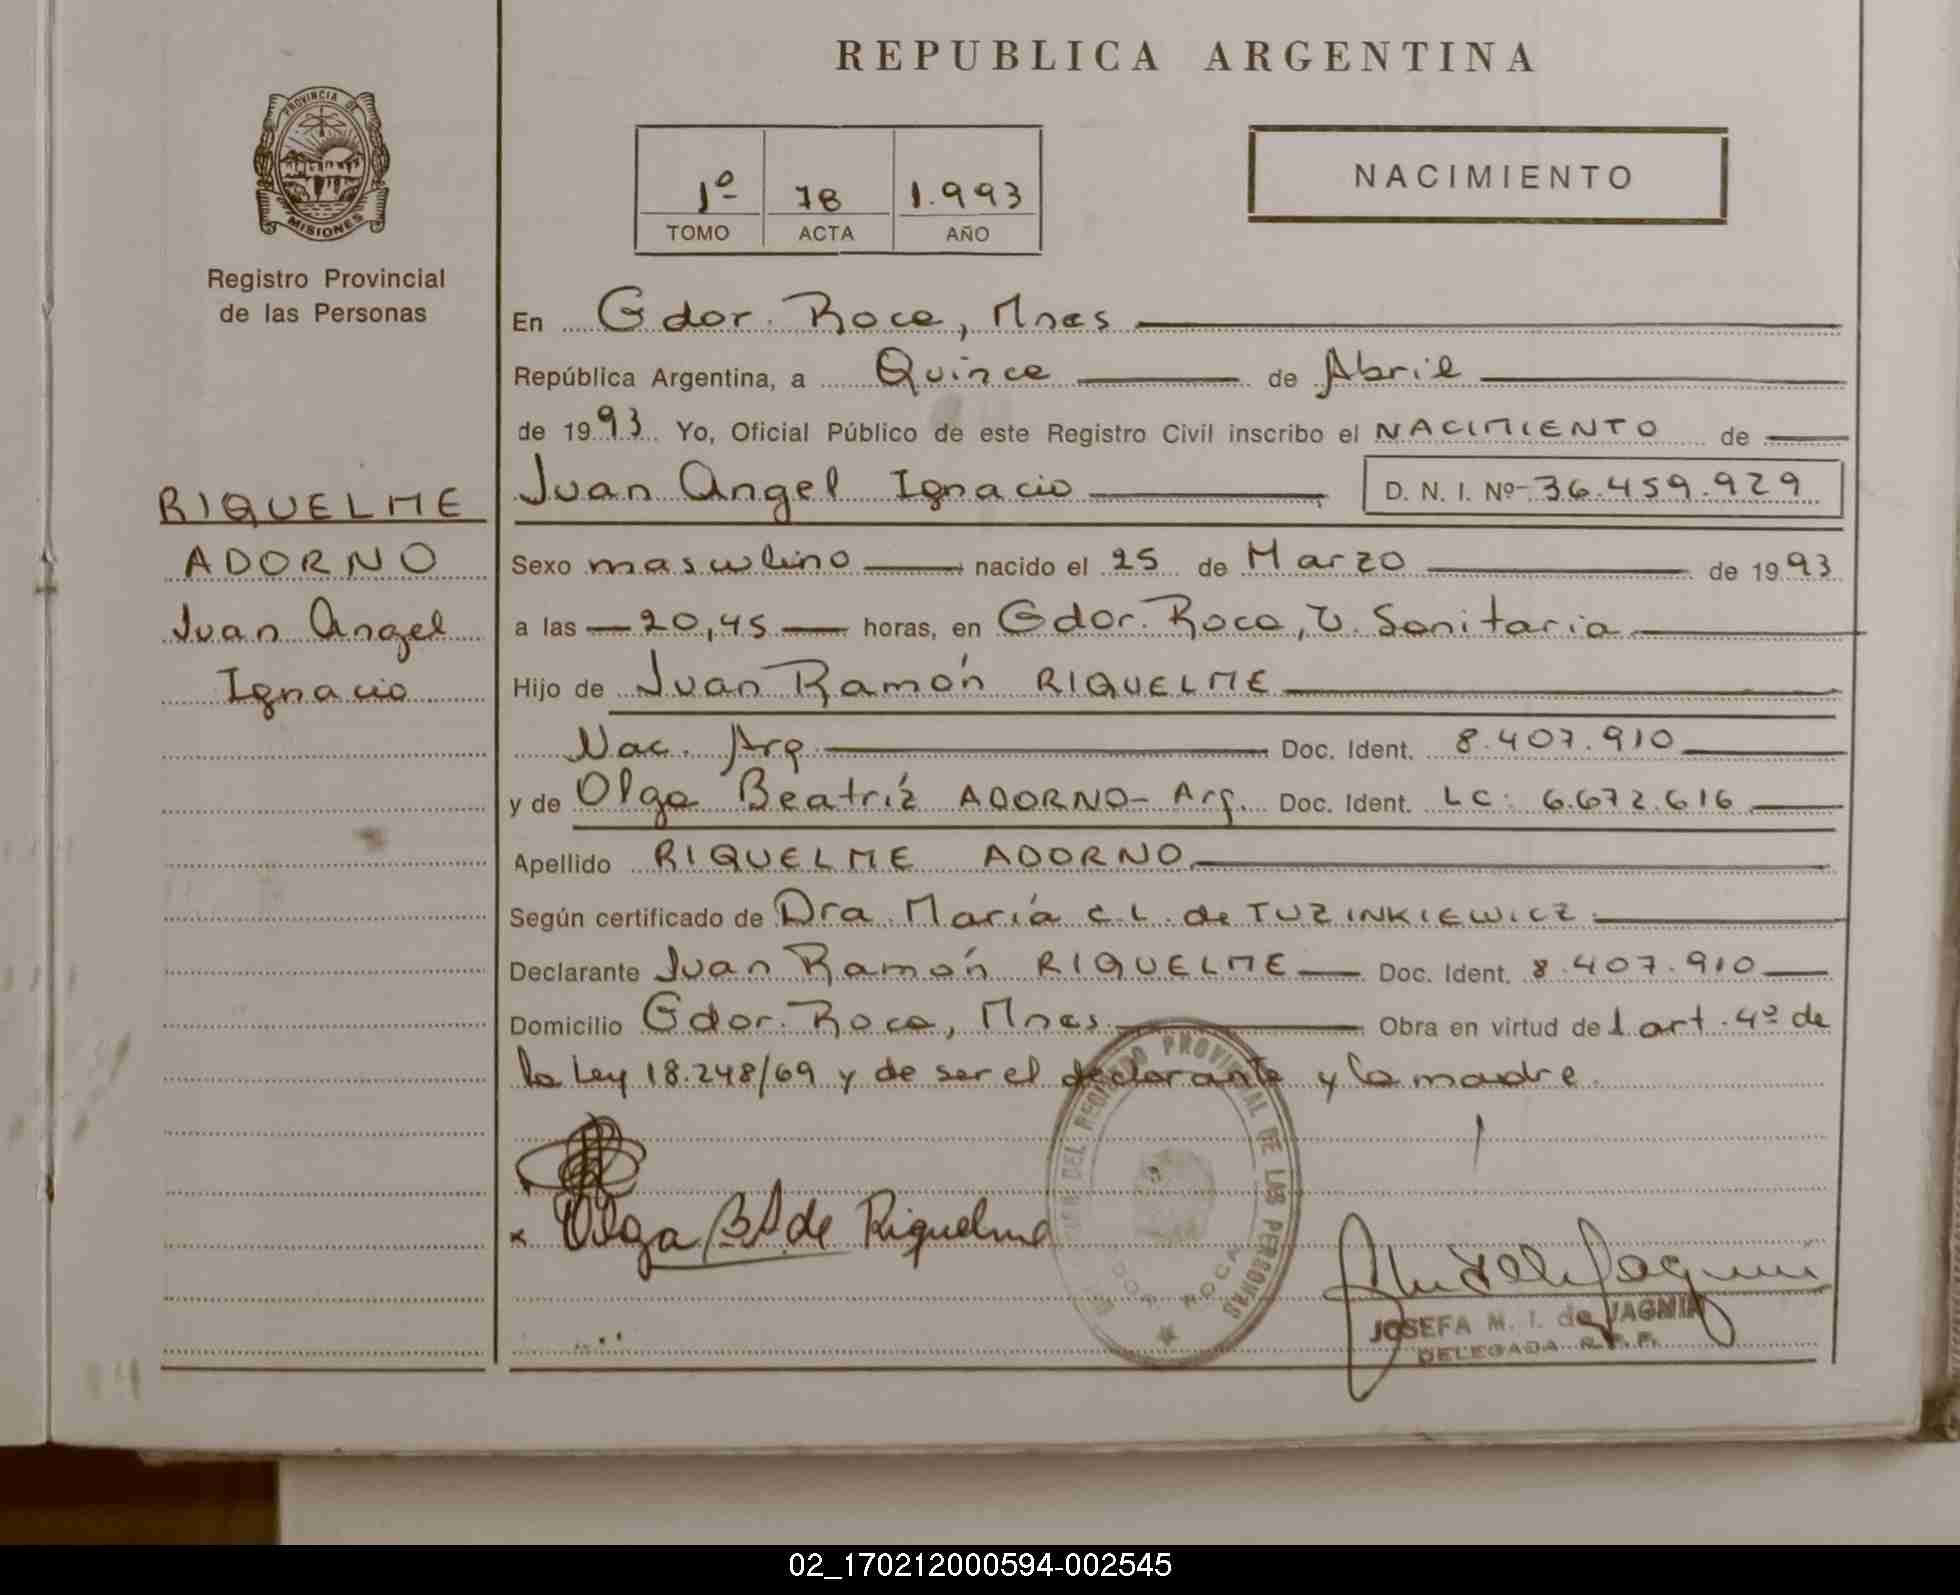 REPUBLICA ARGENTINA
PROVINCIA DE
MISIONES
Registro Provincial
de las Personas
1º 78 1.993
TOMO ACTA AÑO
NACIMIENTO
RIQUELME
ADORNO
Juan Angel
Ignacio
En Gdor. Roca, Mnes
República Argentina, a Quince de Abril
de 1993 Yo, Oficial Público de este Registro Civil inscribo el NACIMIENTO de
Juan Angel Ignacio D. N. I. Nº 36.459.929
Sexo masculino nacido el 25 de Marzo de 1993
a las 20,45 horas, en Gdor. Roca, U. Sanitaria
Hijo de Juan Ramón RIQUELME
Nac. Arg. Doc. Ident. 8.407.910
y de Olga Beatríz ADORNO- Arg. Doc. Ident. LC: 6.672.616
Apellido RIQUELME ADORNO
Según certificado de Dra. María C. L. de TUZINKIEWICZ
Declarante Juan Ramón RIQUELME Doc. Ident. 8.407.910
Domicilio Gdor. Roca, Mnes Obra en virtud del art. 4º de
la Ley 18.248/69 y de ser el declarante y la madre.
x Olga B A. de Riquelme
DEL REGISTRO PROVINCIAL DE LAS PERSONAS
ROCA
JOSEFA M. I. de JAGMIN
DELEGADA R.P.P.
02_170212000594-002545